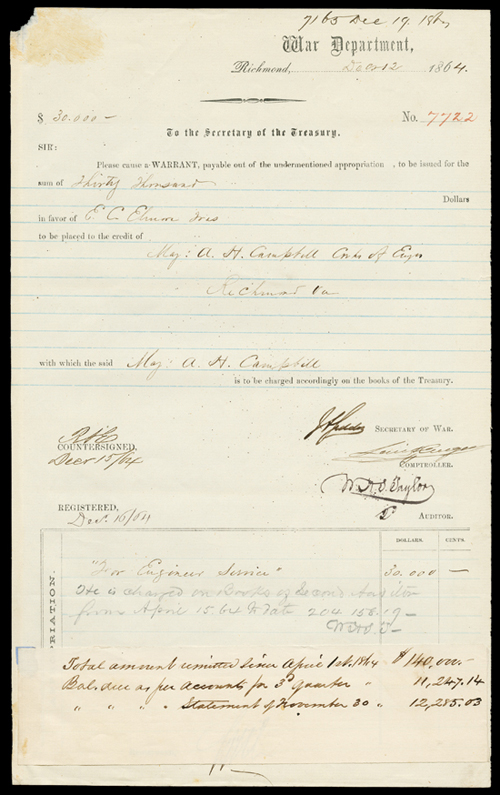 7165 Dec 19. 1864
War Department,
Richmond, Decr 12 1864.
$ 30.000 — No. 7722
To the Secretary of the Treasury.
SIR:
Please cause a WARRANT, payable out of the undermentioned appropriation , to be issued for the
sum of Thirty Thousand
Dollars
in favor of E. C. Elmore Tres
to be placed to the credit of
Maj: A. H. Campbell Corps of Engrs
Richmond Va
with which the said Maj: A. H. Campbell
is to be charged accordingly on the books of the Treasury.
SECRETARY OF WAR.
COUNTERSIGNED.
Decr 15/64
Lewis Cruger
COMPTROLLER.
W. H. S. Taylor
AUDITOR.
REGISTERED,
Dec. 16/64
DOLLARS. CENTS.
RIATION.
"For Engineer Service" 30.000 —
He is charged on Books of Second Auditor
from April 15 64 to date 204.158.19 —
Total amount remitted since April 1st. 1864 $ 140,000.—
Bal. due as per accounts for 3d quarter " 11,247.14
" " " " Statement of November 30 " 12,285.03